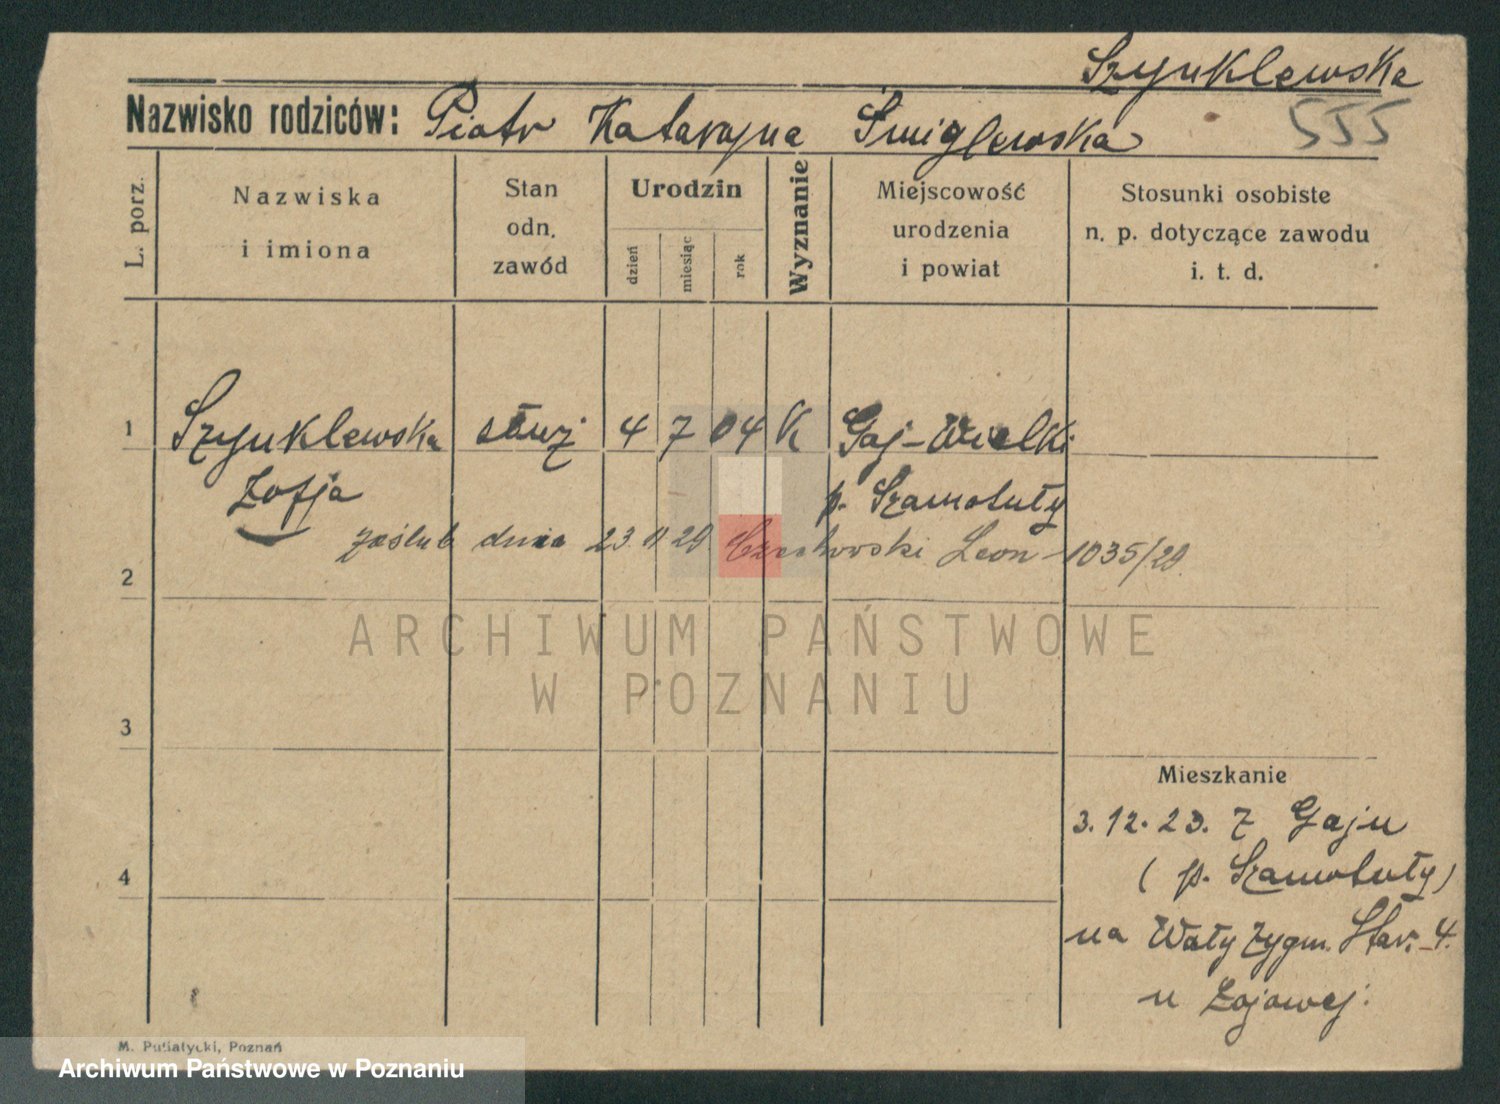 Szynklewska
Nazwisko rodziców: Piotr Katarzyna Śmiglewska
555
L. porz.
Nazwiska
i imiona
Stan
odn.
zawód
Urodzin
dzień
miesiąc
rok
Wyznanie
Miejscowość
urodzenia
i powiat
Stosunki osobiste
n. p. dotyczące zawodu
i. t. d.
1 Szynklewska służ 4 7 04 K Gaj-Wielki
Zofja p. Szamotuły
zaślub dnia 23 11 29 Leon 1035/29
2
3
4
ARCHIWUM PAŃSTWOWE
W POZNANIU
Mieszkanie
3. 12. 23. z Gaju
(p. Szamotuły)
na Wały Zygm. Star. 4.
u
M. Putiatycki, Poznań
Archiwum Państwowe w Poznaniu